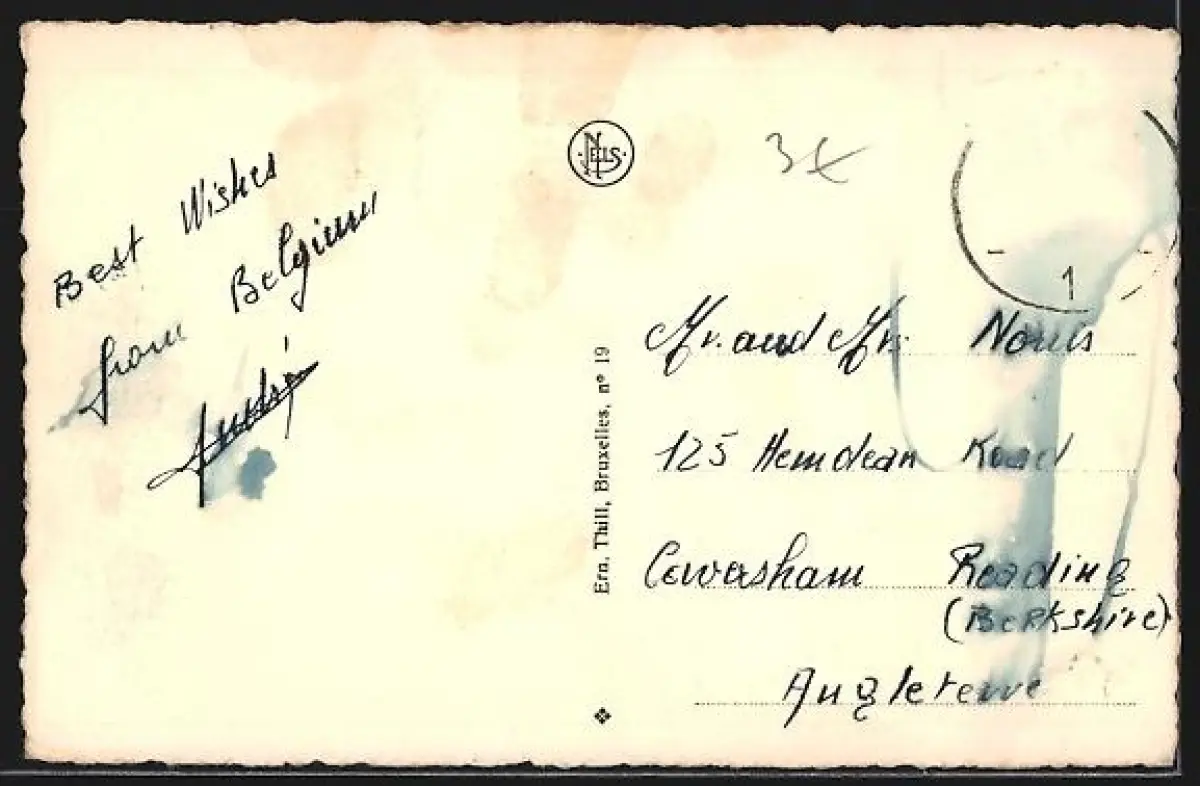 Best Wishes
from Belgium
André
NELS
Ern. Thill, Bruxelles, nº 19
3
1
Mr. and Mrs. Norris
125 Hemdean Road
Caversham Reading
(Berkshire)
Angleterre